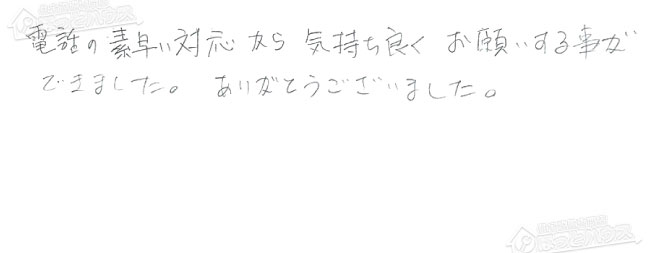 電話の素早い対応から 気持ち良く お願いする事が
できました。 ありがとうございました。